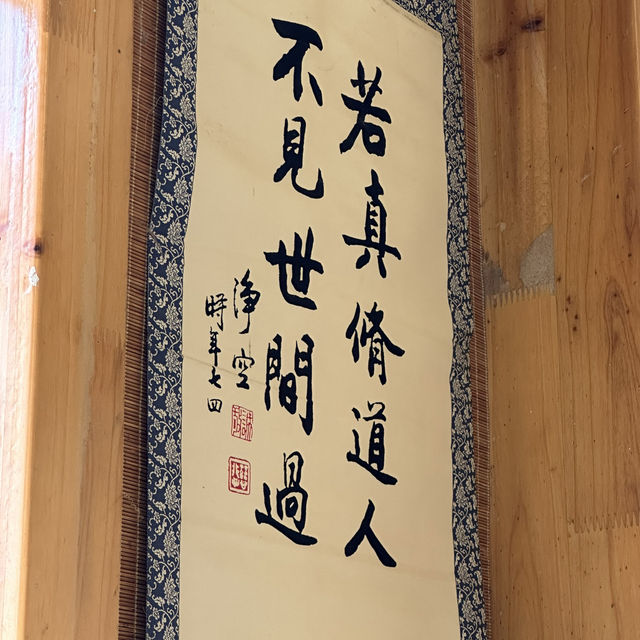 若真脩道人
不見世間過
淨空
時年七四